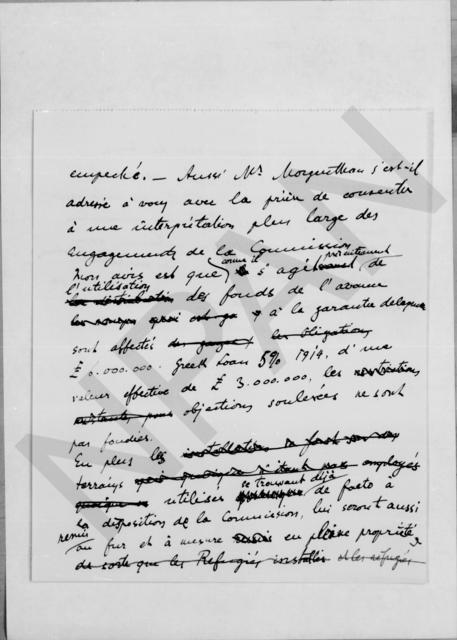 empeché. — Aussi Mr Morguenthau s'est-il
adressé à vous avec la prière de consentir
à une interprétation plus large des
engagements de la Commission
Mon avis est que comme il s'agit présentement de
l'utilisation
la distribution des fonds de l'avance
à la garantie de laquelle
sont affectés les obligations
£ 6.000.000. Greek Loan 5% 1914, d'une
valeur effective de £ 3.000.000, les
objections soulevées ne sont
pas fondées.
En plus les installations
terrains employés
se trouvant déjà
utilisés de facto à
la disposition de la Commission, lui seront aussi
remis
au fur et à mesure en pleine propriété
de sorte que les Refugiés installés et les refugiés
NPAN